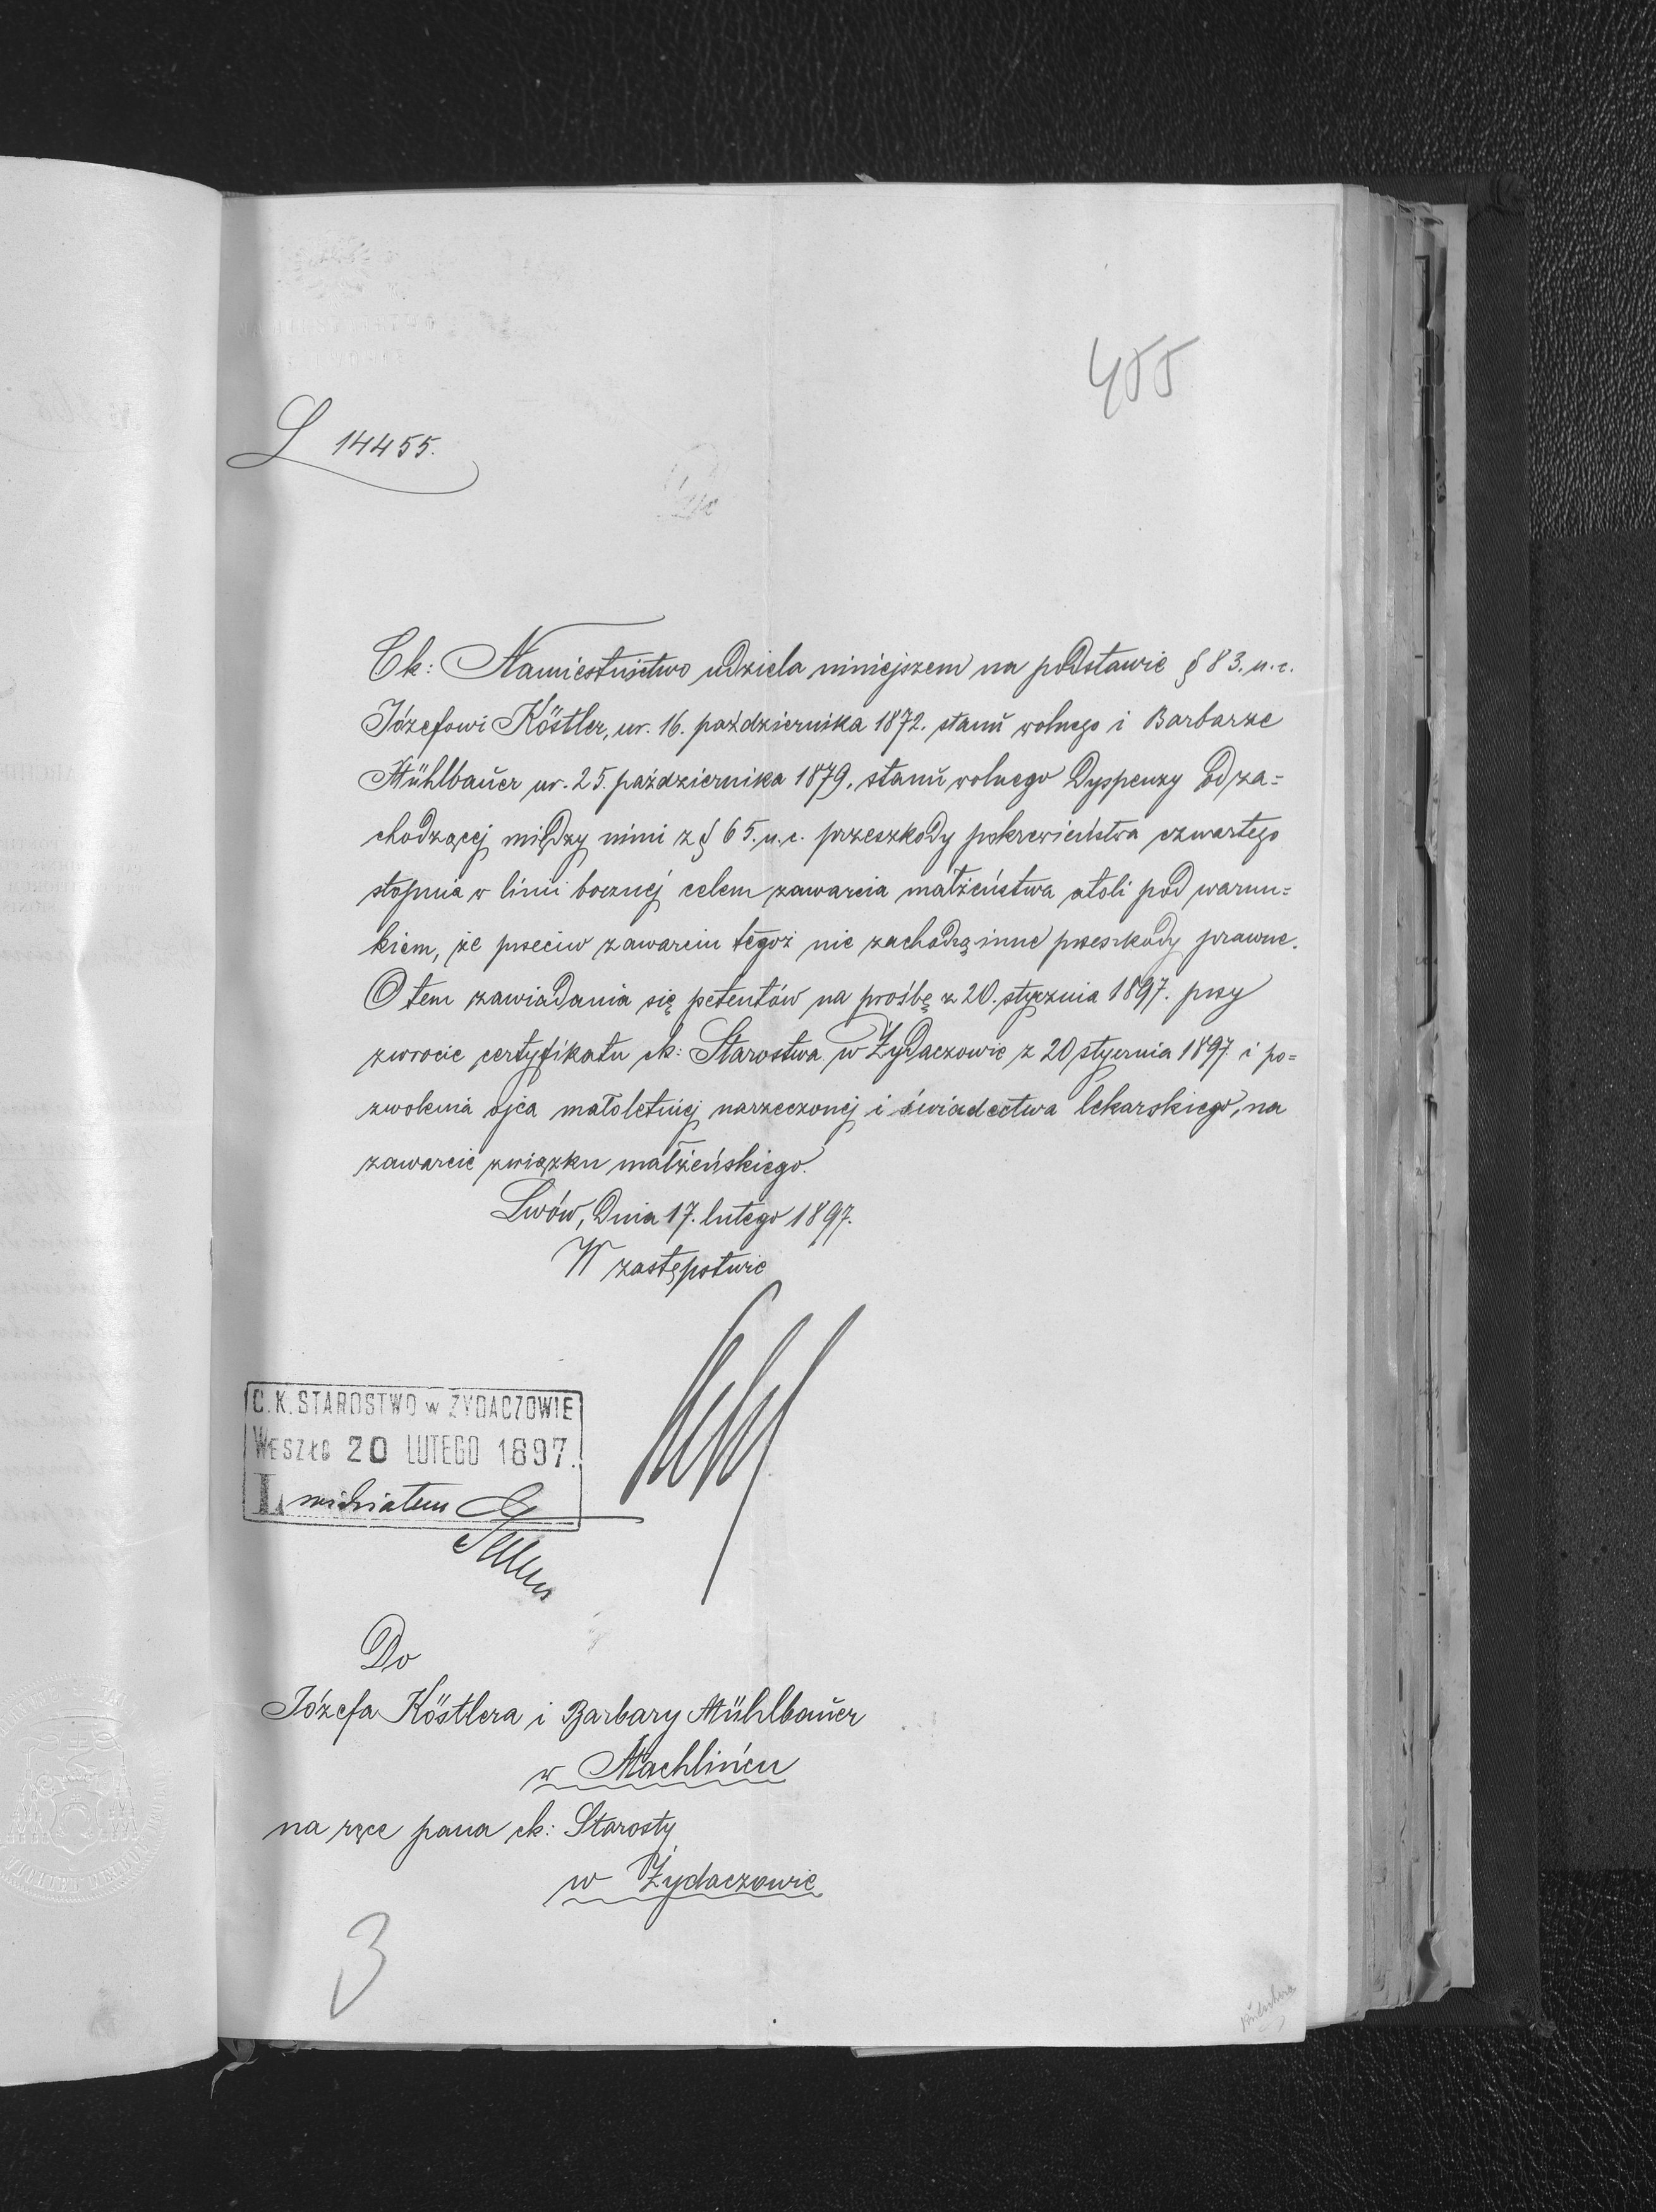 455
L 14455.
Ck: Namiestnictwo udziela niniejszem na podstawie § 83. u. c.
Józefowi Köstler, ur. 16. października 1872. stanŭ wolnego i Barbarze
Mühlbaŭer ur. 25. października 1879. stanŭ wolnego Dyspenzy od za=
chodzącej między nimi z § 65. u. c. przeszkody pokrewieństwa czwartego
stopnia w linii bocznej celem zawarcia małżeństwa atoli pod warun=
kiem, że przeciw zawarciu tegoż nie zachodzą inne przeszkody prawne.
O tem zawiadamia się petentów na prośbę z 20. stycznia 1897. przy
zwrocie certyfikatu ck: Starostwa w Żydaczowie z 20 stycznia 1897. i po=
zwolenia ojca małoletniej narzeczonej i świadectwa lekarskiego, na
zawarcie związku małżeńskiego.
Lwów, Dnia 17. lutego 1897.
W zastępstwie
C. K. STAROSTWO w ŻYDACZOWIE
WESZŁO 20 LUTEGO 1897.
L widziałem
Do
Józefa Köstlera i Barbary Mühlbaŭer
w Machlińcu
na ręce pana ck: Starosty
w Żydaczowie
3